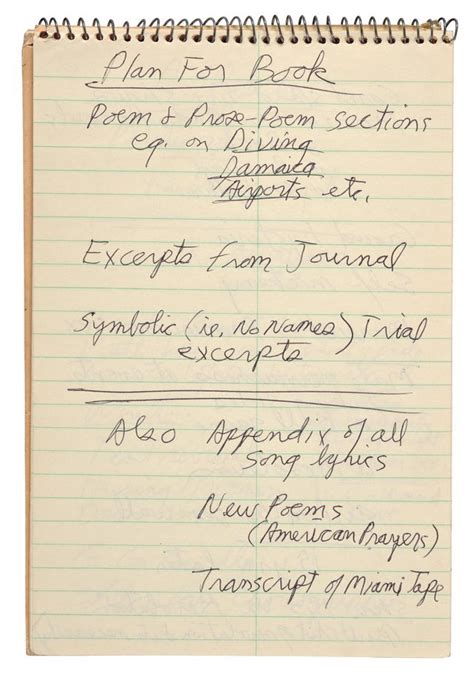 Plan For Book
Poem & Prose-Poem sections
eg. on Diving
Jamaica
Airports etc.
Excerpts from Journal
Symbolic (ie, No Names) Trial
excerpts
Also Appendix of all
song lyrics
New Poems
(American Prayers)
Transcript of Miami Tape